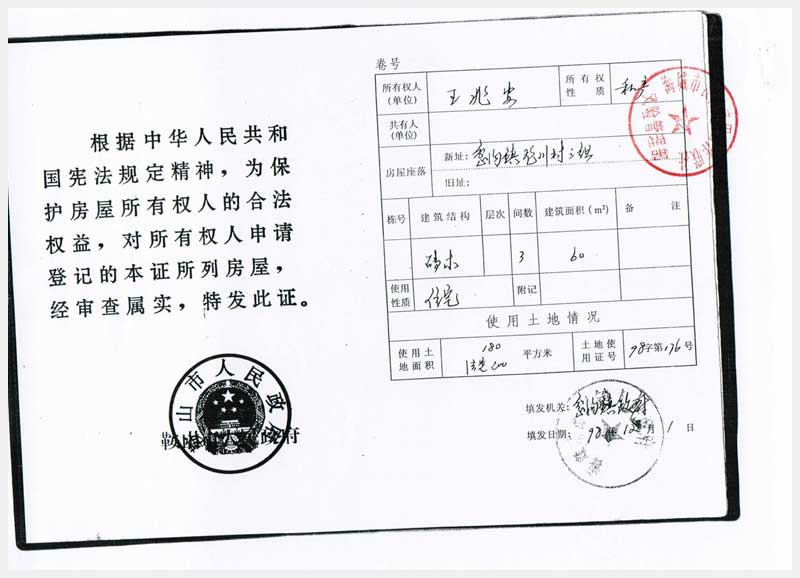 根据中华人民共和
国宪法规定精神，为保
护房屋所有权人的合法
权益，对所有权人申请
登记的本证所列房屋，
经审查属实，特发此证。
山市人民政府
鞍山市人民政府
卷号
所有权人
(单位)
王兆安
所有权
性质
私产
共有人
(单位)
房屋座落
新址:
镇 川村三组
旧址:
栋号 建筑结构 层次 间数 建筑面积(m²) 备注
砖木 3 60
使用
性质
住宅
附记
使用土地情况
使用土
地面积
180
法定200
平方米
土地使
用证号
98字第176号
填发机关:
镇政府
填发日期: 98年12月1日
海城市